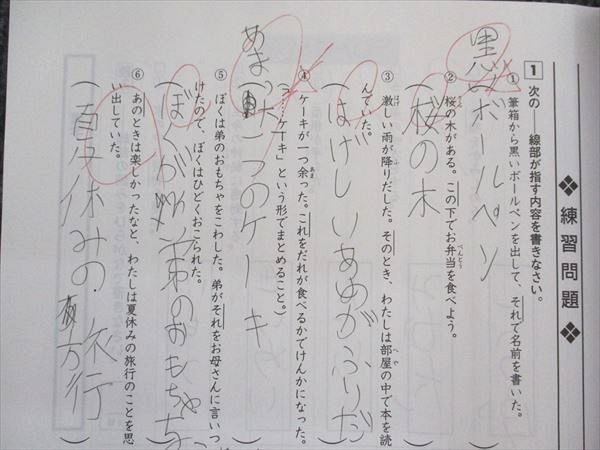 ❖ 練習問題 ❖
1 次の――線部が指す内容を書きなさい。
① 筆箱から黒いボールペンを出して、それで名前を書いた。
黒いボールペン
② 桜の木がある。この下でお弁当を食べよう。
桜の木
③ 激しい雨が降りだした。そのとき、わたしは部屋の中で本を読
んでいた。
はげしいあめがふりだ
④ ケーキが一つ余った。これをだれが食べるかでけんかになった。
(「……ケーキ」という形でまとめること。)
あまった一つのケーキ
⑤ ぼくは弟のおもちゃをこわした。弟がそれをお母さんに言いつ
けたので、ぼくはひどくおこられた。
ぼくが弟のおもちゃを
⑥ あのときは楽しかったなと、わたしは夏休みの旅行のことを思
い出していた。
夏休みの旅行